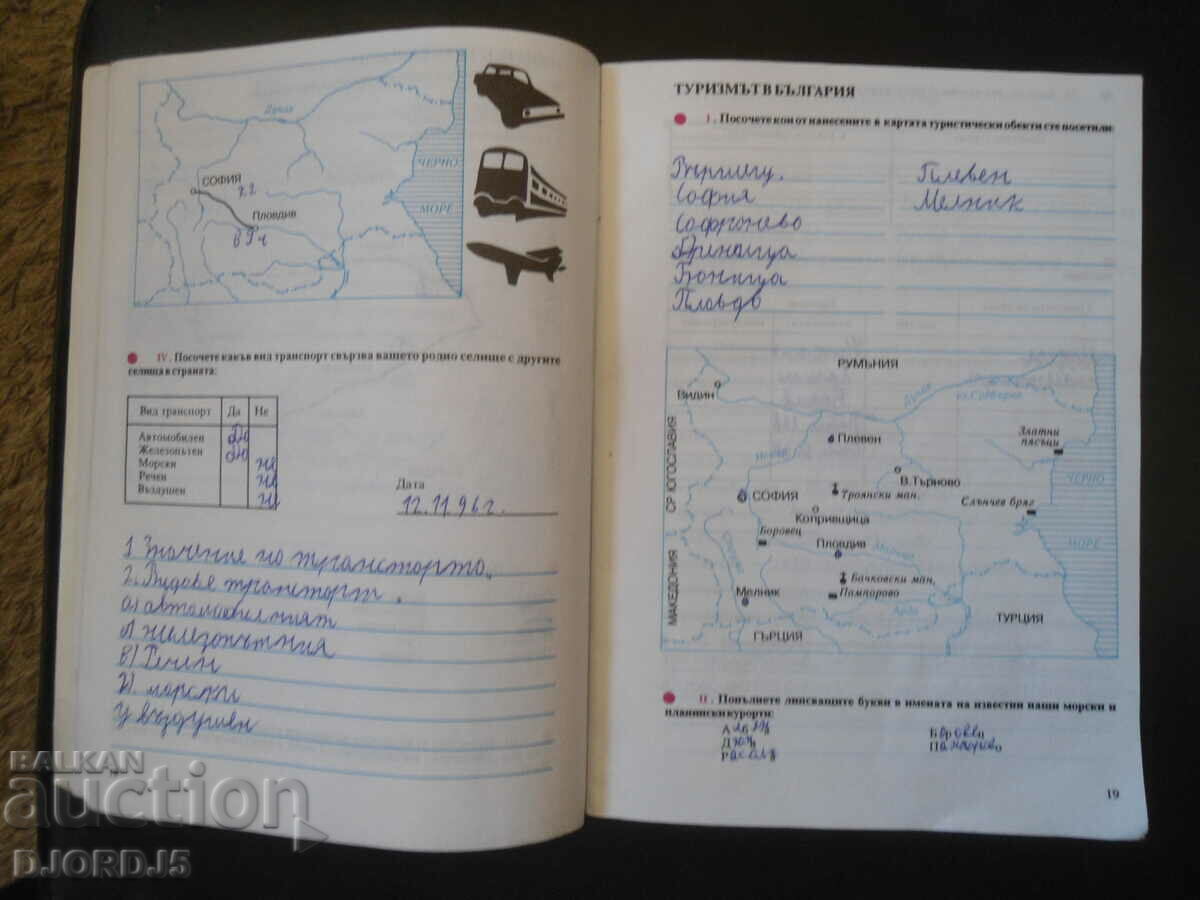 Дунав
ЧЕРНО
СОФИЯ
Пловдив
МОРЕ
IV. Посочете какъв вид транспорт свързва вашето родно селище с другите
селища в страната:
Вид транспорт Да Не
Автомобилен Да
Железопътен Да
Морски не
Речен не
Въздушен не
Дата
12.11.96 г.
1. Значение на транспорта.
2. Видове транспорт.
а) автомобилният
железопътния
в) Речен
морски
въздушен
ТУРИЗМЪТ В БЪЛГАРИЯ
I. Посочете кои от нанесените в картата туристически обекти сте посетили:
София
Софрониево
Плевен
Мелник
РУМЪНИЯ
Видин
Дунав
Златни
пясъци
Плевен
СР ЮГОСЛАВИЯ
В. Търново
ЧЕРНО
СОФИЯ
Троянски ман.
Слънчев бряг
Копривщица
Боровец
Пловдив
Марица
МОРЕ
МАКЕДОНИЯ
Бачковски ман.
Мелник
Пампорово
Арда
ТУРЦИЯ
ГЪРЦИЯ
II. Попълнете липсващите букви в имената на известни наши морски и
планински курорти:
19
BALKAN
auction
DJORDJ5